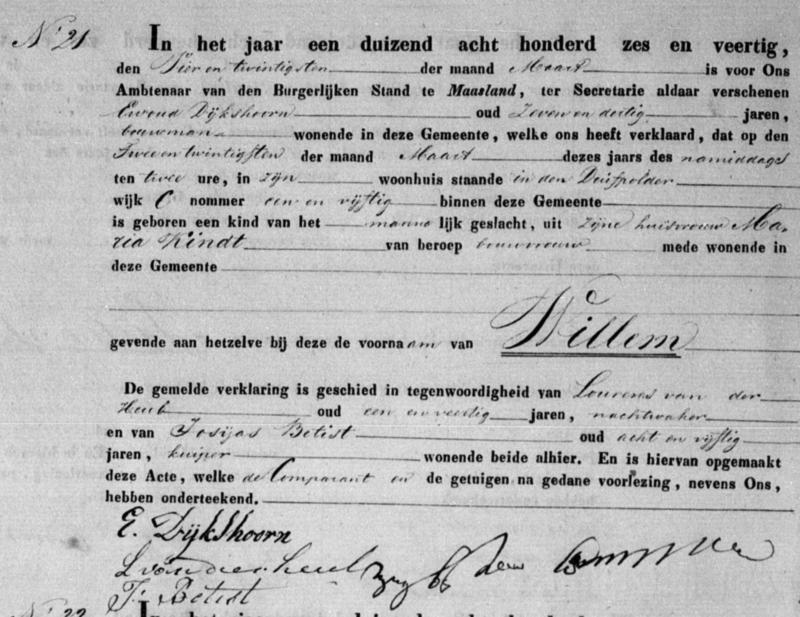 No 21 In het jaar een duizend acht honderd zes en veertig,
den Vier en twintigsten der maand Maart is voor Ons
Ambtenaar van den Burgerlijken Stand te Maasland, ter Secretarie aldaar verschenen
Ewoud Dijkshoorn oud Zeven en dertig jaren,
bouwman wonende in deze Gemeente, welke ons heeft verklaard, dat op den
Twee en twintigsten der maand Maart dezes jaars des namiddags
ten twee ure, in zijn woonhuis staande in den Duifpolder
wijk C nommer een en vijftig binnen deze Gemeente
is geboren een kind van het manne lijk geslacht, uit zijne huisvrouw Ma-
ria Kindt van beroep bouwvrouw mede wonende in
deze Gemeente
gevende aan hetzelve bij deze de voornaam van Willem
De gemelde verklaring is geschied in tegenwoordigheid van Lourens van der
Heul oud een en veertig jaren, nachtwaker
en van Josijas Betist oud acht en vijftig
jaren, kuiper wonende beide alhier. En is hiervan opgemaakt
deze Acte, welke de Comparant en de getuigen na gedane voorlezing, nevens Ons,
hebben onderteekend.
E. Dijkshoorn
L van der heul
J: Betist
No 22 In het jaar een duizend acht honderd